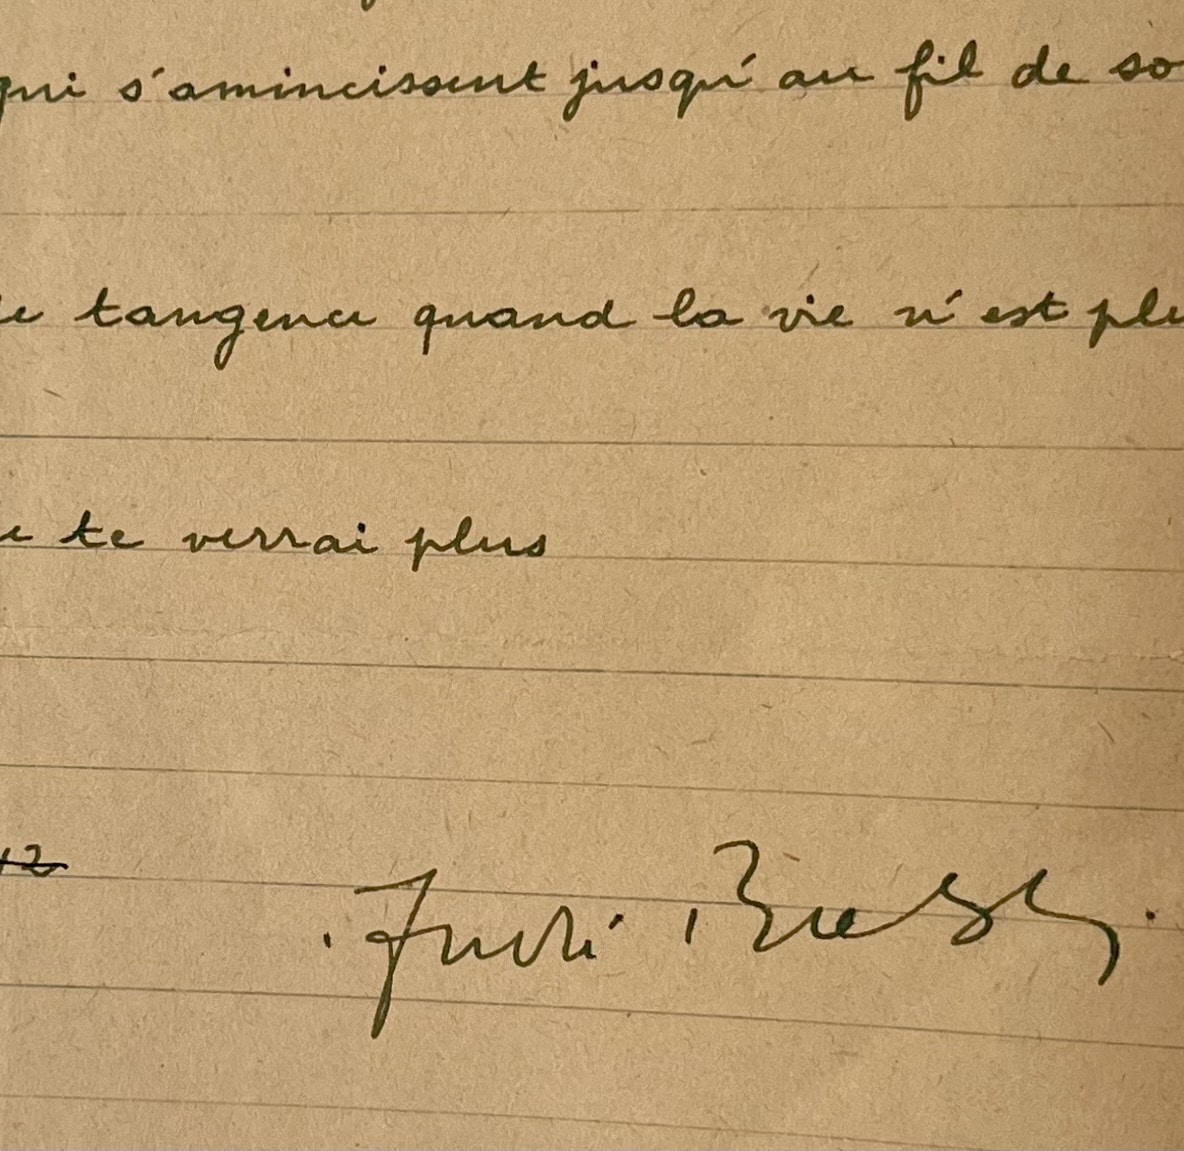 qui s'amincissent jusqu'au fil de so
e tangence quand la vie n'est plu
e te verrai plus
12
André Breton